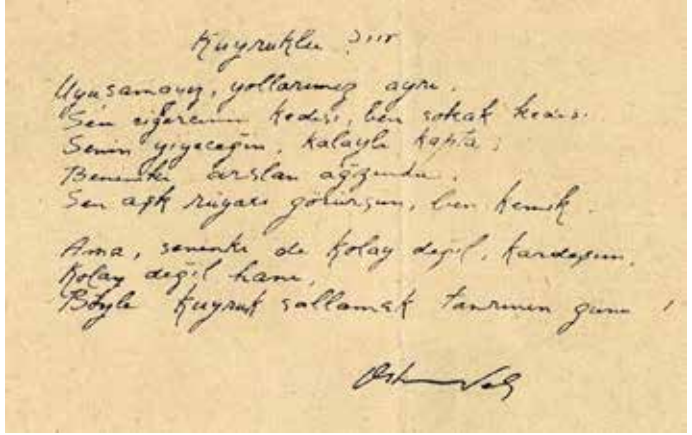 Kuyruklu Şiir
Uyuşamayız, yollarımız ayrı.
Sen ciğercinin kedisi, ben sokak kedisi.
Senin yiyeceğin, kalaylı kapta;
Benimki arslan ağzında.
Sen aşk rüyası görürsün, ben kemik.
Ama, seninki de kolay değil, kardeşim,
Kolay değil hani,
Böyle kuyruk sallamak tanrının günü!
Orhan Veli